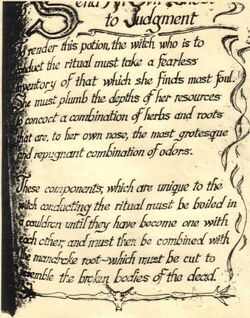 to Judgment
To render this potion, the witch, who is to
conduct the ritual must take a fearless
inventory of that which she finds most foul.
She must plumb the depths of her resources
to concoct a combination of herbs and roots
that are, to her own nose, the most grotesque
and repugnant combination of odors.
These components, which are unique to the
witch conducting the ritual must be boiled in
a cauldren until they have become one with
each other, and must then be combined with
the mandrake root-which must be cut to
resemble the broken bodies of the dead.